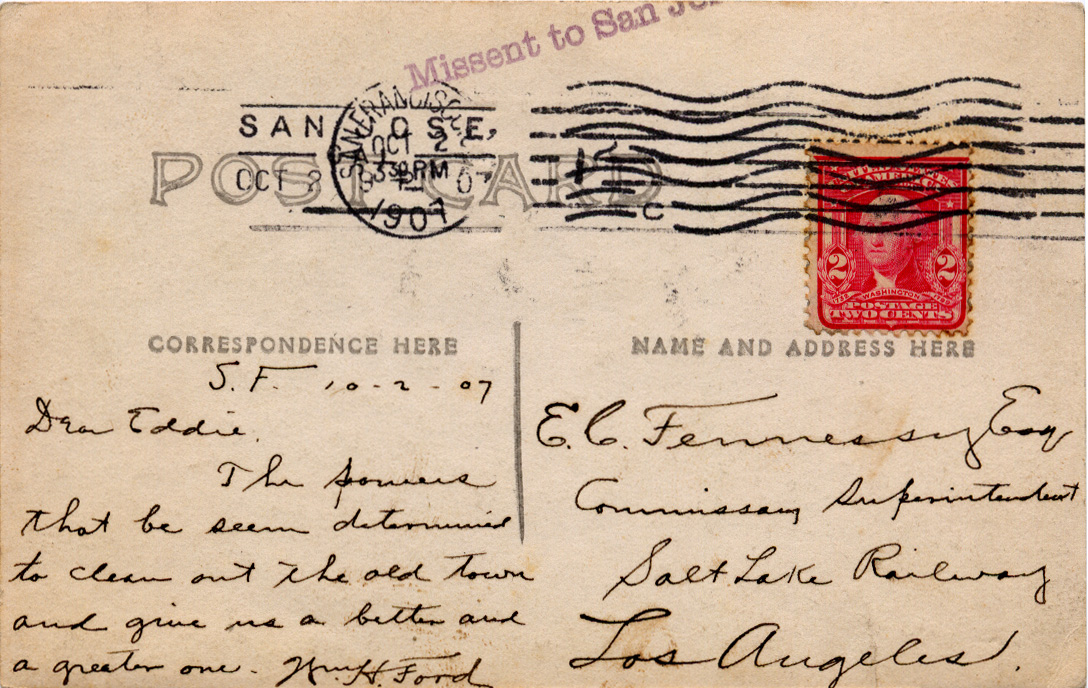 Missent to San
SAN FRANCISCO
SAN JOSE,
OCT 2
3 30 PM
OCT 3
1907
C
POST CARD
UNITED STATES
OF AMERICA
2 2
1732 WASHINGTON 1799
POSTAGE
TWO CENTS
CORRESPONDENCE HERE
NAME AND ADDRESS HERE
S.F. 10-2-07
Dear Eddie.
The powers
that be seem determined
to clean out the old town
and give us a better and
a greater one. Wm. H. Ford
E. C. Fennessy Esq
Commissary Superintendent
Salt Lake Railway
Los Angeles.